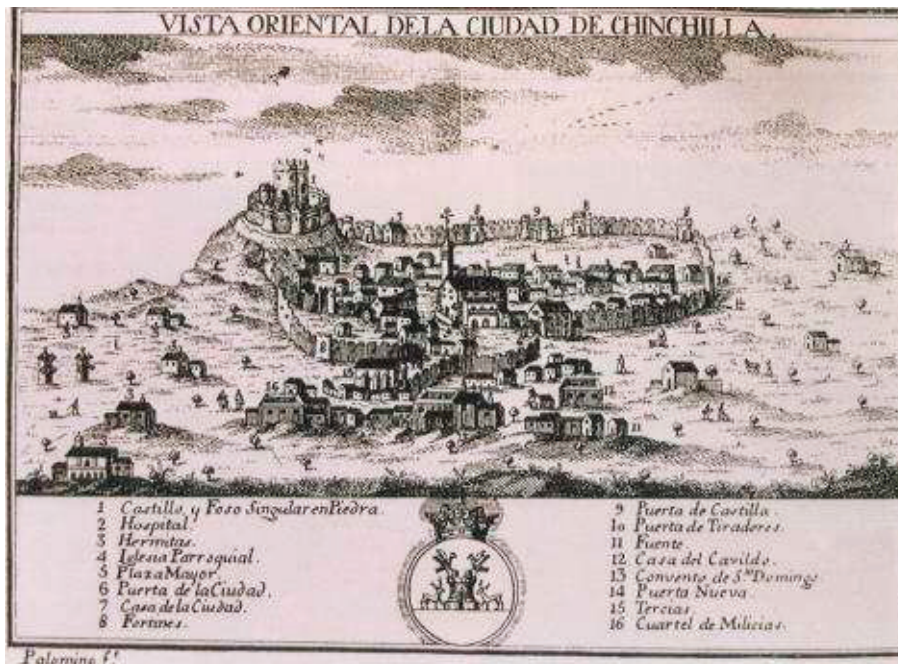 VISTA ORIENTAL DE LA CIUDAD DE CHINCHILLA.
1 Castillo, y Foso Singular en Piedra.
2 Hospital.
3 Hermitas.
4 Iglesia Parroquial.
5 Plaza Mayor
6 Puerta de la Ciudad.
7 Casa de la Ciudad.
8 Fortines.
9 Puerta de Castilla.
10 Puerta de Tiradores.
11 Fuente.
12 Casa del Cavildo.
13 Convento de S.to Domingo
14 Puerta Nueva
15 Tercias.
16 Cuartel de Milicias.
Palomino f.t